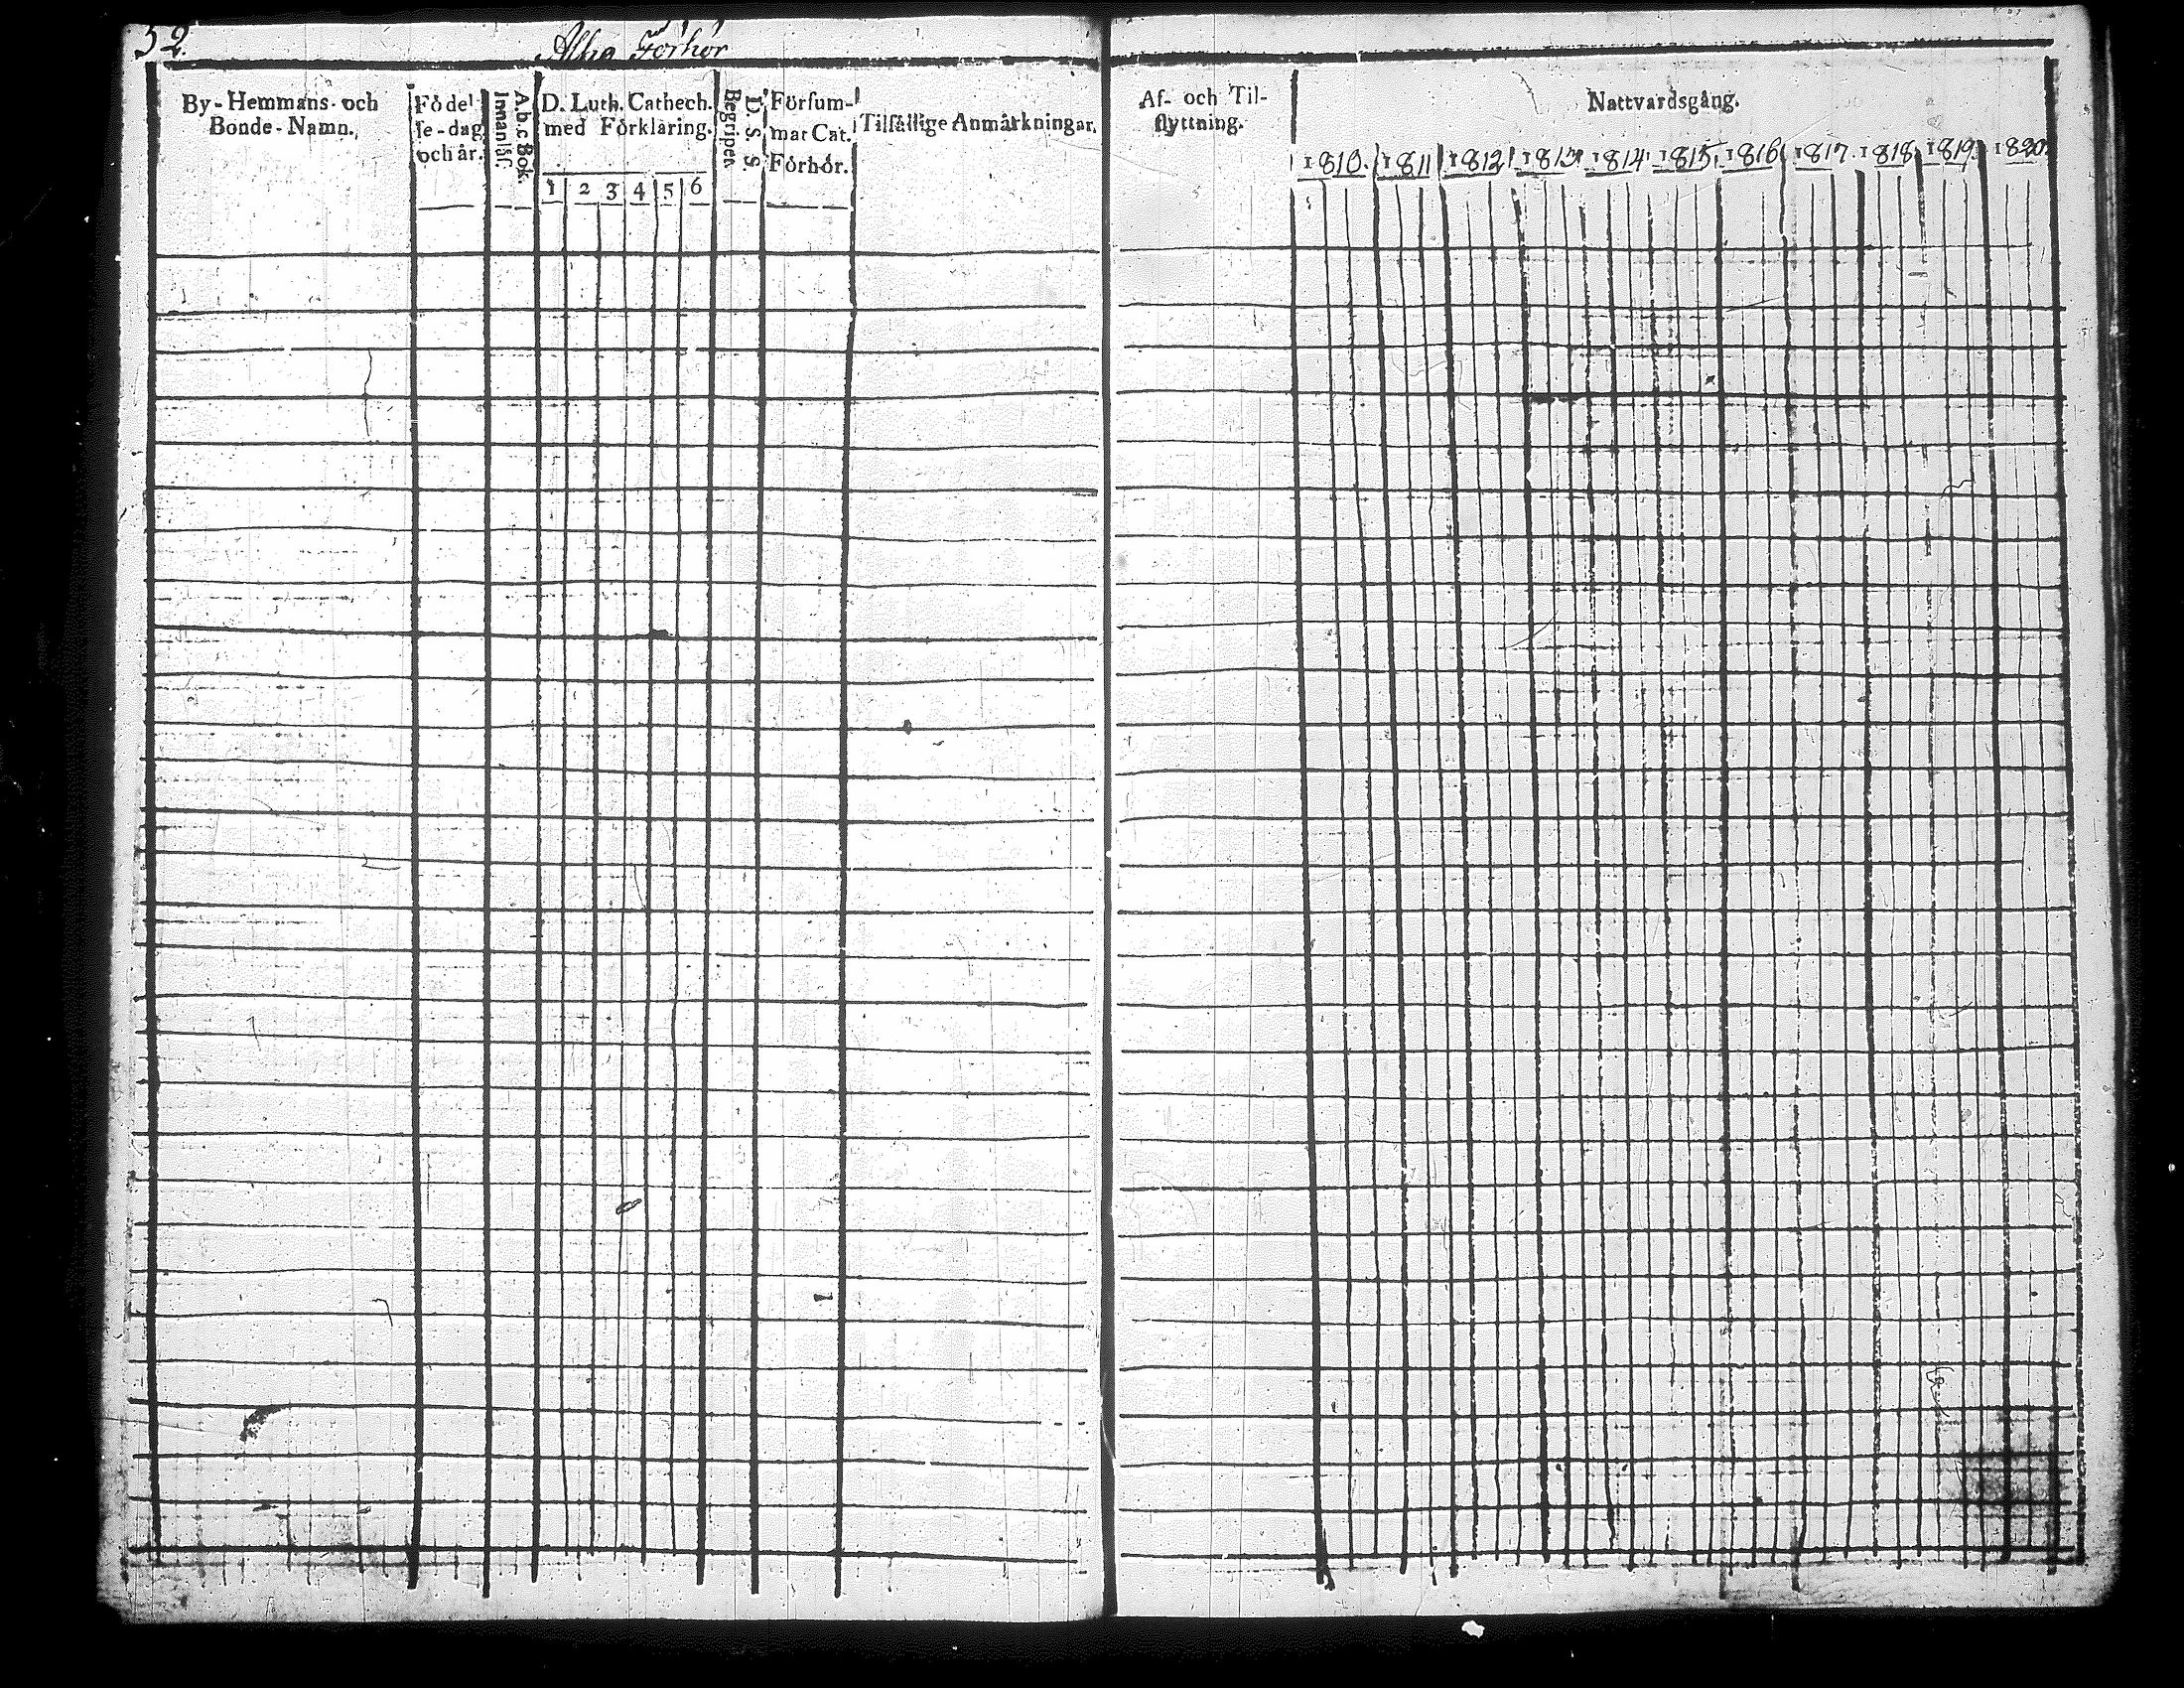 52.
Förhör
By-Hemmans-och
Bonde-Namn.
Födel-
se-dag
och år.
A.b.c Bok.
Innanläs.
D. Luth. Cathech.
med Förklaring.
1 2 3 4 5 6
D. S. S.
Begripet.
Försum-
mat Cat.
Förhör.
Tilfällige Anmärkningar.
Af- och Til-
flyttning.
Nattvardsgång.
1810. 1811 1812 1813 1814 1815 1816 1817. 1818 1819. 1820.